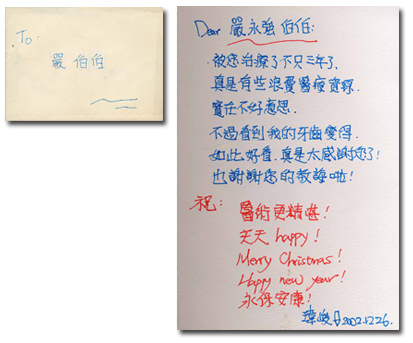 To
嚴 伯伯
Dear 嚴永強 伯伯:
被您治療了不只三年了,
真是有些浪費醫療資源,
實在不好意思.
不過看到我的牙齒變得
如此好看,真是太感謝您了!
也謝謝您的教導啦!
祝: 醫術更精甚!
天天 happy!
Merry Christmas!
Happy new year!
永保安康!
瑋峻 2002.12.26.